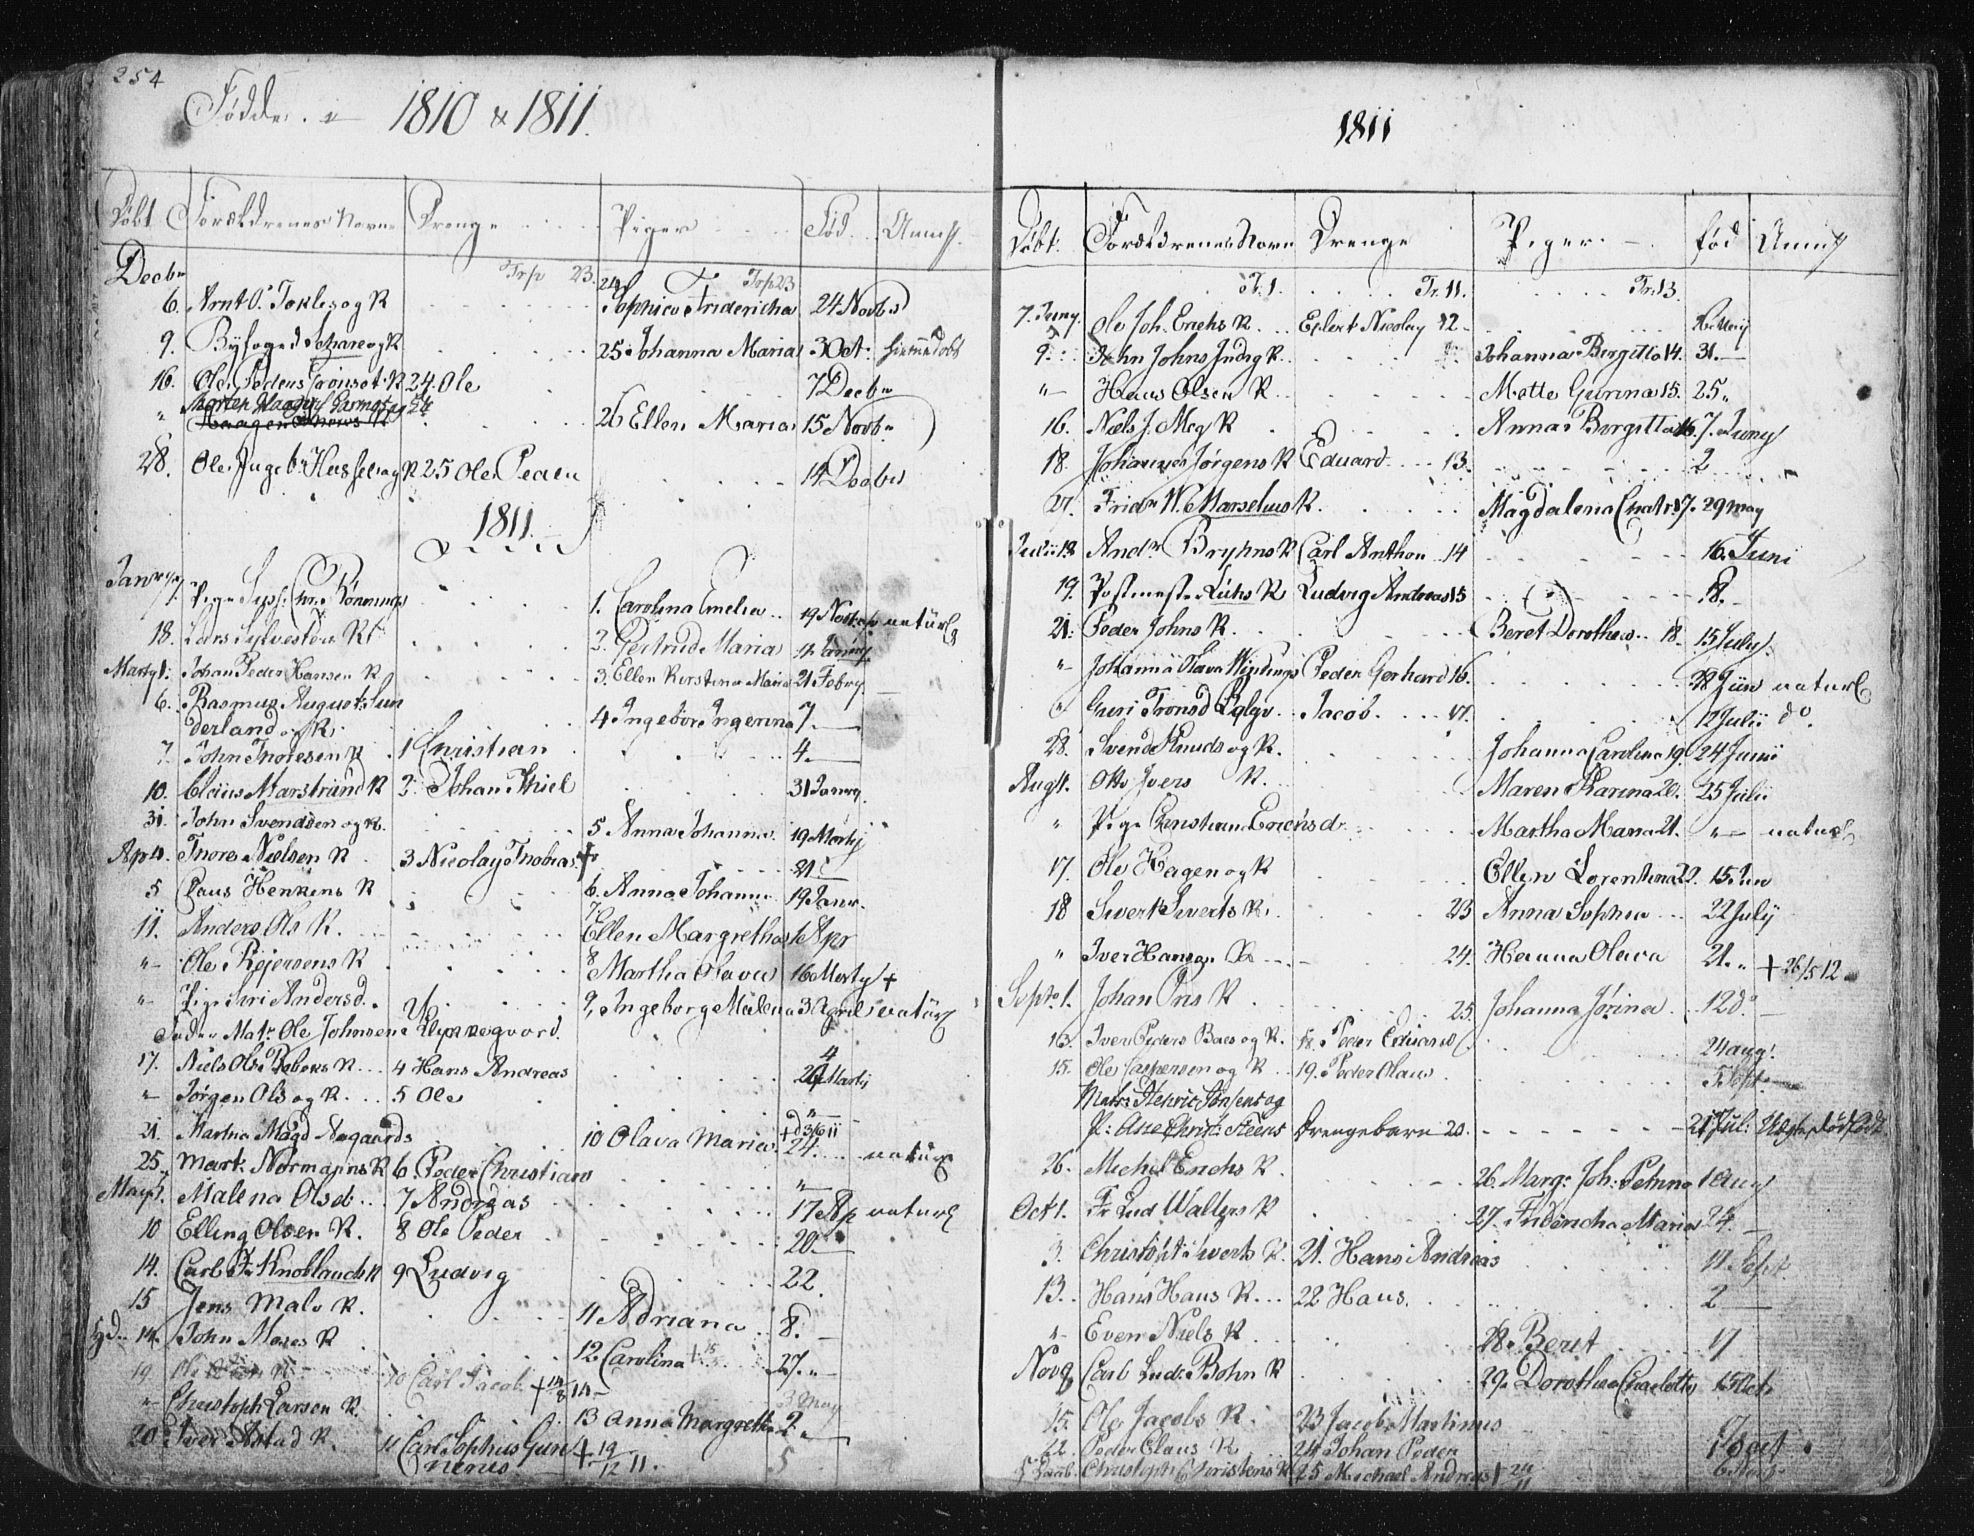 254
Fødde. i 1810 & 1811.
Døbt Forældrenes Navne Drenge Piger Fød Anm
Decbr Trp 23. Trp 23
6. Arnt O. Toklesog K 24 Sophie Fridericha 24 Novbr
9. Byfoged og K 25 Johanna Maria 3 Oct: hiemmedøbt
16. Ole Peders Grønset K 24. Ole 7 Decbr
" Morten Garmager 26 Ellen Maria 15 Novbr
Haagen K
28. Ole Ingebr: og K 25 Ole Peder 14 Decbr
1811.
Janv 17. Pige Chr. Rønnings 1. Carolina Emelia 19 Novbr naturl
18. Lars Sylvester K 2. Gertrud Maria
Marty 1. Johan Peder Hansen K 3. Ellen Kirstina Maria 21 Febry
6. Rasmus August Sun
derland og K. 4 Ingebor Ingerina 7.
7. John Thoresen K 1 Christian 4.
10. Claus Marstrand K 2. Johan Thiel 31 Janvy.
31. John Svendsen og K. 5 Anna Johanna 19 Martij
Ap 4. Thore Nielsen K 3 Nicolay Thobias † 21
5 Claus Henkens K 6. Anna Johanna 19 Janr.
11. Anders Ols K. 7 Ellen Margretha 1 Apr
" Ole Rejersens K 8 Martha Olava 16 Marty †
" Pige Siri Andersd. 9. Ingeborg Malena 3 April natürl
Fader Matr. Ole Johnsen
17. Niels Ols K 4 Hans Andreas 24 Martij
" Jørgen Ols og K. 5 Ole "
21. Martha Magd Aagaards 10 Olava Maria 24. naturl
25. Mart. Normanns K 6. Peder Christian "
May 1. Malena Olsd. 7 Andreas 17 Ap naturl
10 Elling Olsen K. 8 Ole Peder 20.
14. Carl Fr Knoblauch K 9 Ludvig 22.
15 Jens Malo K. 11 Adriana 8.
14. John Moses K 12 Carolina † 27.
19. Ole K 10 Carl Jacob † 14/8 3 May
" Christoph Larsen K. 13 Anna Margreth 2.
20. Iver Astad K. 11 Carl Sophus Gun
nerus † 19/12 11. 5
1811
Døbt. Forældrenes Navn Drenge Piger. Fød Anm
Tr. 1. Tr. 11. Tr. 13.
7. Juny Ole Joh. Erichs K. Eylert Nicolay 12 16 May
9. John Johns K. Johanna Bergitta 14. 31.
" Hans Olsen K. Mette Gurina 15. 25.
16. Niels J. Meg K Anna Bergitta 16. 7. Juny
18. Johannes Jørgens K Eduard 13. 2
27. Fridr W. Marselius K. Magdalena Chatr 17. 29 May
Julii 18 Andr Bryhns K Carl Anthon 14 16. Juni
19. Postmest. K Ludvig Andreas 15 18.
21. Peder Johns K. Beret Dorothea 18. 15 July.
" Johanna Olava Peder Gerhard 16. 28 Juni naturl
" Guri Tronsd Jacob. 17. 12 Julii do.
28. Svend Knuds og K. Johanna Carolina 19. 24 Junii
Aug 1. Otto Ivers K. Maren Karina 20. 25 Julii
" Pige Christiana Erichsd. Martha Maria 21. " naturl
17. Ole Hagen og K Ellen Lorentina 22. 15. Jun
18 Siwert Siwerts K. 23 Anna Sophia 22 July
" Iver Hansen K 24. Hanna Olava 21. " † 26/5 12
Septr 1. Johan Pris K 25. Johanna Jörina 12 do
13. Iver Peders Baes og K. 18. Peder Eduard 24 aug.
15. Ole Caspersen og K 19. Peder Olaus 5. Sept
Matr. Henric Jensens og
P: Ane Christ: Steens Drengebarn 20. 21 Jul: Uægte, dødfødt
26. Michel Erichs K. 26. Marg. Joh: Petrina 1 Aug
Oct 1. Fr Lud Walters K 27. Friderica Maria 24.
3. Christoph Siwerts K. 21. Hans Andreas 11 Sept.
13. Hans Hans K. 22 Hans. 2
" Even Niels K. 28. Beret 17
Nov 9 Carl Lud: Bohn K 29. Dorothea Charlotta 15 Oct
15. Ole Jacobs K. 23 Jacob Martinus
22. Peder Claus K 24 Johan Peder 18 oct
Christoph Christens K 25 Michael Andreas † 24/11